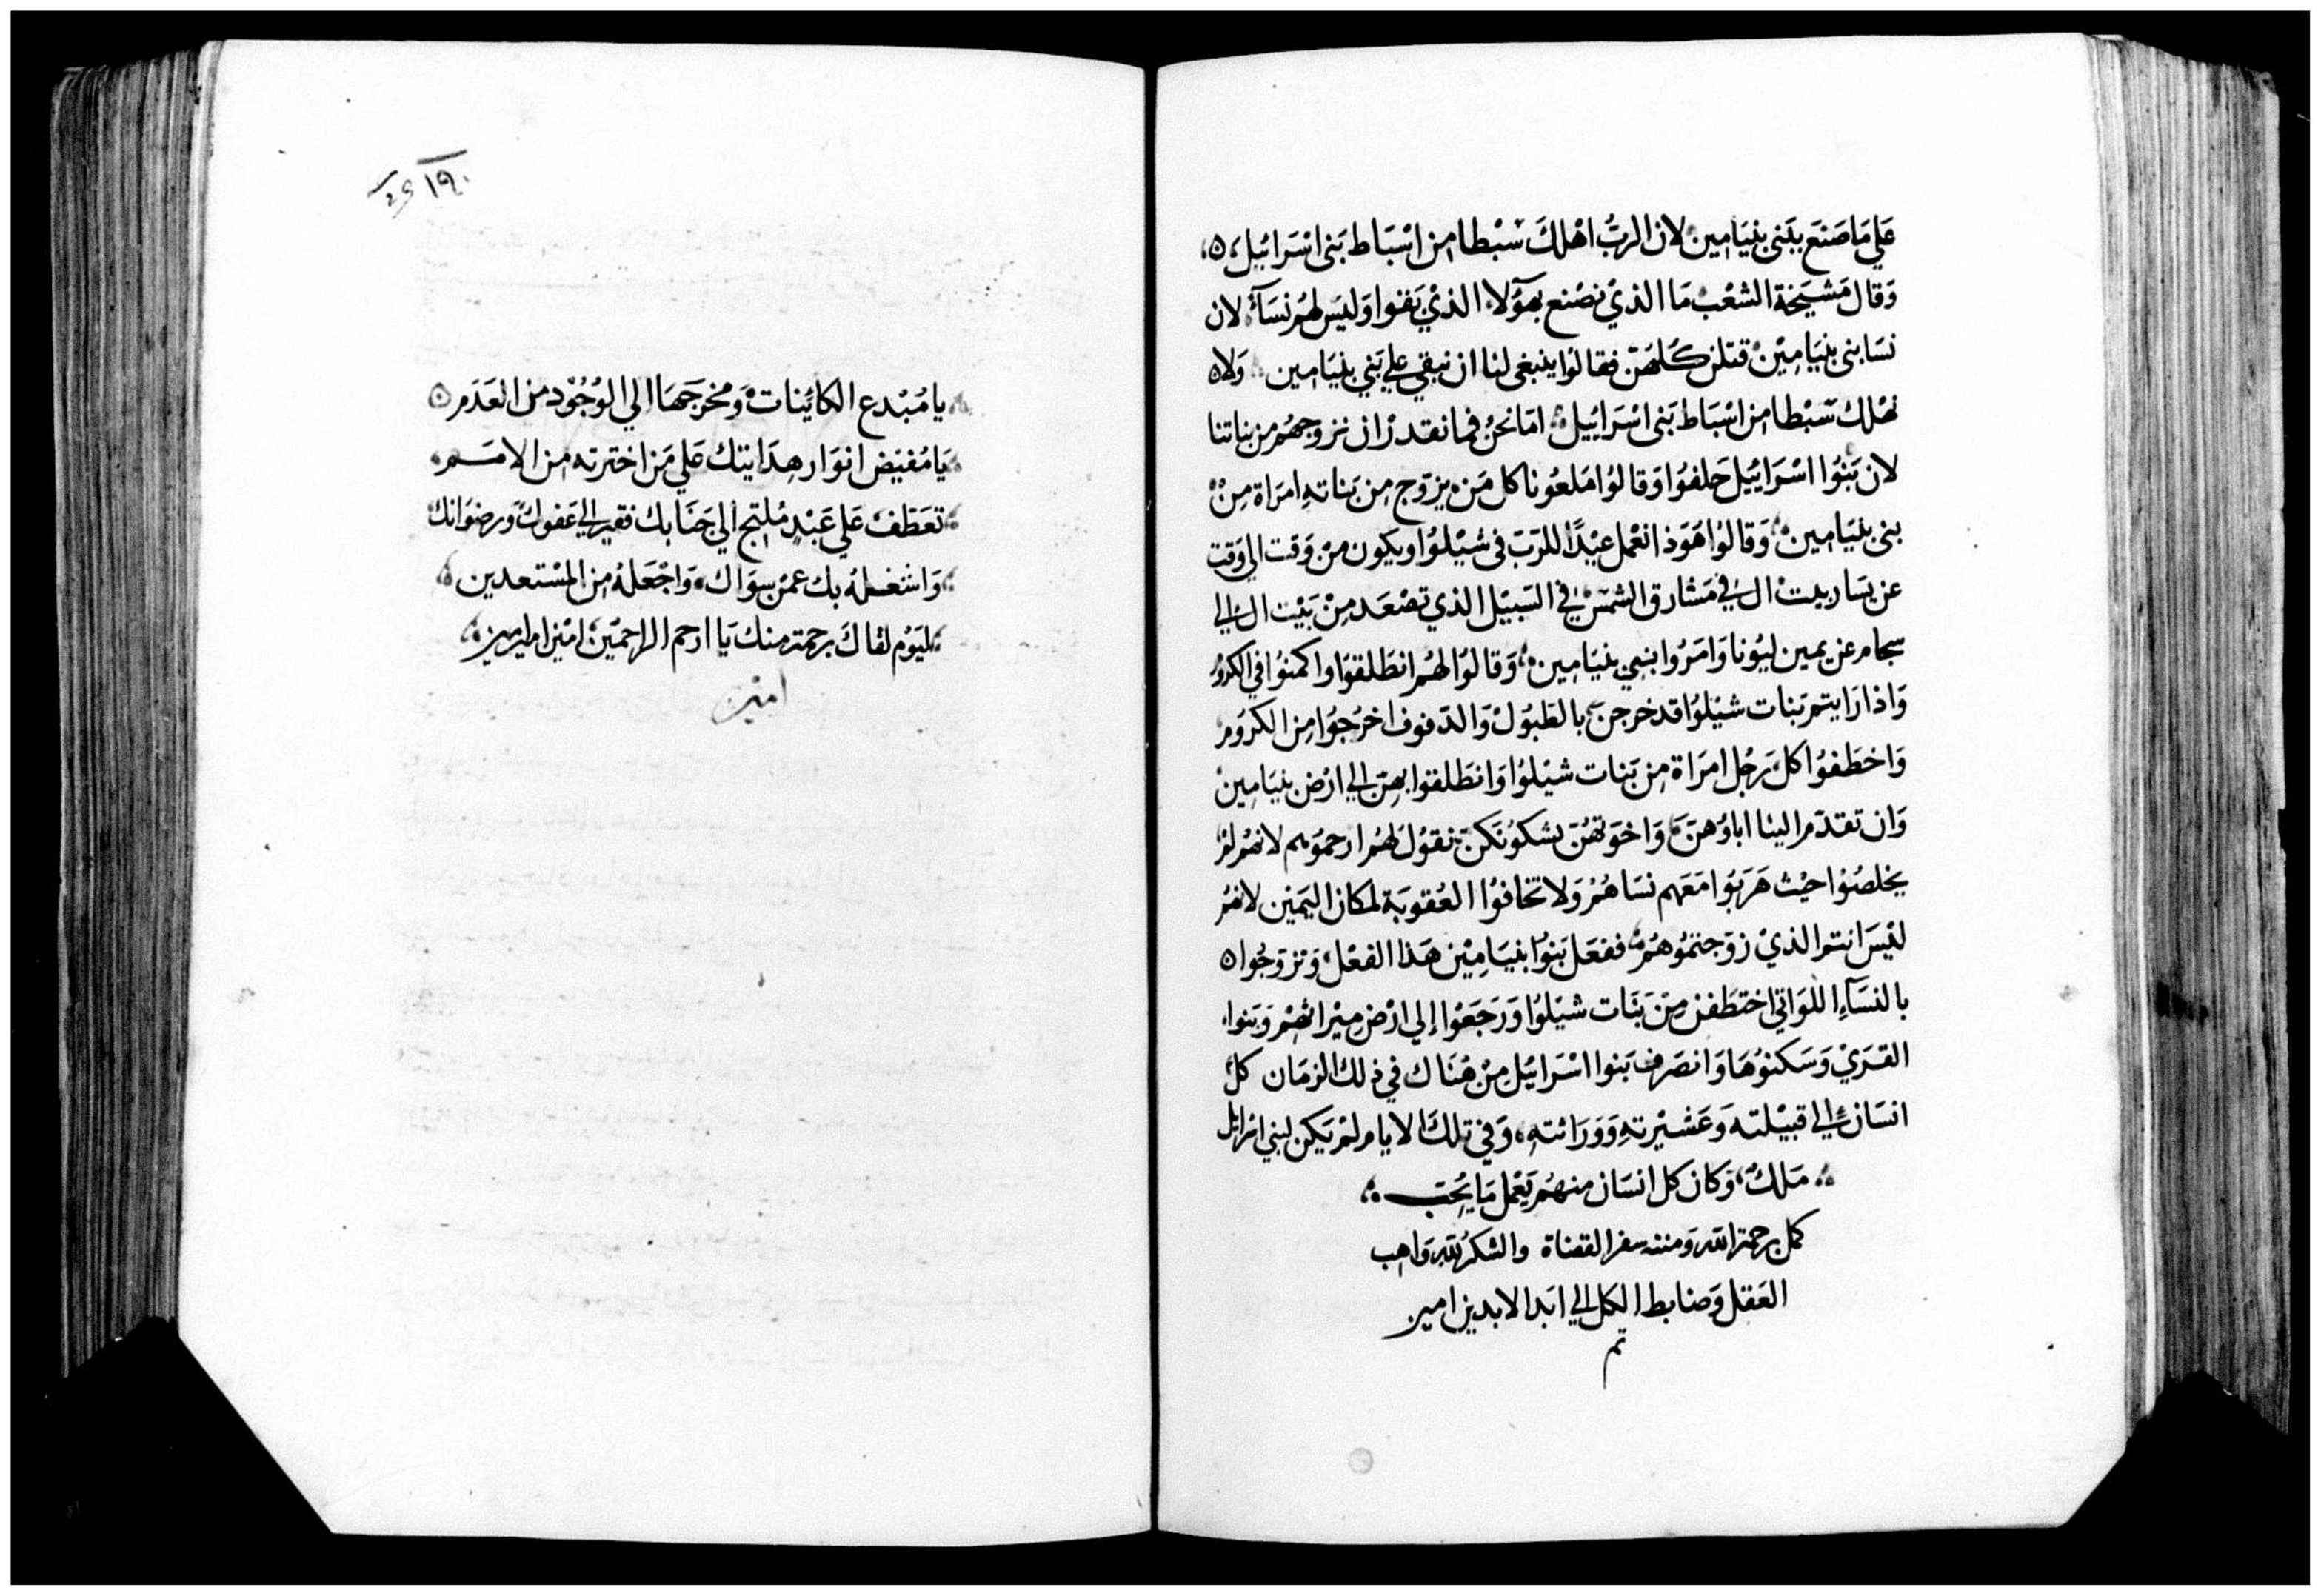 عَلي مَا صَنَع ببَني بنيَامِين لان الرَبّ اهْلكَ سَبْطا من اسْبَاط بَني اسْرَائيل
وَقال مَشيَخة الشعْب مَا الذيْ نصْنع بهَوُلآء الذيْ بَقوا وَليسَ لهُم نسَآء لان
نسَا بني بنيَامِيْن قتلن كلهُنّ فقالوا ينبغي لنا ان نبقي علي بَني بنيَامِين وَلا
نهْلك سَبْطا من اسْبَاط بَني اسْرَائِيل امَا نحْنُ فما نقدرْ ان نزوجهُم من بناتنا
لان بَنوُا اسْرَايَيل حَلفوُا وَقالوُا مَلعُونا كل مَنْ يزوّج من بَناتهِ امرَاة مِنْ
بني بنيَامِين وَقالوُا هَوَذا نعْمل عيْدًا للرَبّ في شيْلوُا ويكون منْ وَقت الي وَقت
عن يسَار بيت ال في مَشارق الشمسْ في السَبيْل الذي تصْعَد مِنْ بَيْت ال الي
سجام عن يمين ليُونا وَامَرُوا بني بنيَامِين وَقالوُا لهُم انطَلقوُا واكمنوُا في الكرُومْ
وَاذا رَايتم بَنات شيْلوُا قد خرجن بالطبُولْ وَالدفوف اخرُجوُا من الكرُوم
وَاخطَفوُا كل رَجُل امرَاة مِن بَنات شيْلوُا وَانطَلقوا بهِنّ الي ارْض بنيَامِينْ
وَان تقدّم الينا اباوُهنّ وَاخوَتهُنّ يشكوُنكنّ نقوُل لهُم ارحمُوهم لانهُم لمْ
يخلصُوْا حيْث هَرَبوُا مَعَهم نسَاهُمْ وَلا تخافوُا العُقوبَة لمكان اليَمْين لانهُمْ
ليْسَ انتم الذيْ زوّجتمُوهُمْ ففعَل بَنوُا بنيَامِيْن هَذا الفعْل وَتزوّجُوا
بالنسَآءِ اللوَاتي اختطَفن مِنْ بَنَات شيْلوُا وَرَجَعْوُا إلي ارْض ميْراثهِمْ وَبَنوا
القرَيْ وَسَكنوُهَا وَانصَرفَ بَنوا اسْرَايْل مِنْ هُنَاك في ذلك الزمَان كلْ
انسَان الي قبيْلته وَعَشيْرتهِ وَوَرَاثتهِ وَفي تلكَ الايام لمْ يَكن لبني اسْرايل
مَلكْ وَكان كل انسَان منهُم يَعْمل مَا يُحِبّ
كمل برحمة الله وَمننه سفر القضاة والشكر لله وَاهب
العَقل وَضابط الكل الي ابَد الابدين امين
تم
١٩٠
يا مُبْدع الكائِنات وَمخرجَهَا الي الوُجُوْد من العَدَم
يَا مُفيض انوَار هِدَايتك عَلي مَن اخترته من الامَم
تعَطفْ عَلي عَبْدٍ مُلتج الي جَنَابك فقير الي عَفوكَ وَرضوَانك
وَاشغلهُ بك عمن سِوَاك وَاجْعَلهُ من المسْتعدين
ليَوُم لقاكَ برحمة منك يَا ارحم الراحميْن امْين امين امين
امْين